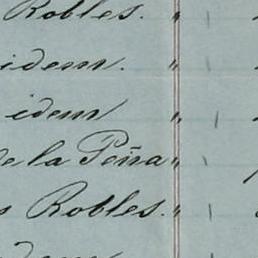 Robles. "
idem. "
idem "
de la Peña "
s Robles. "
idem